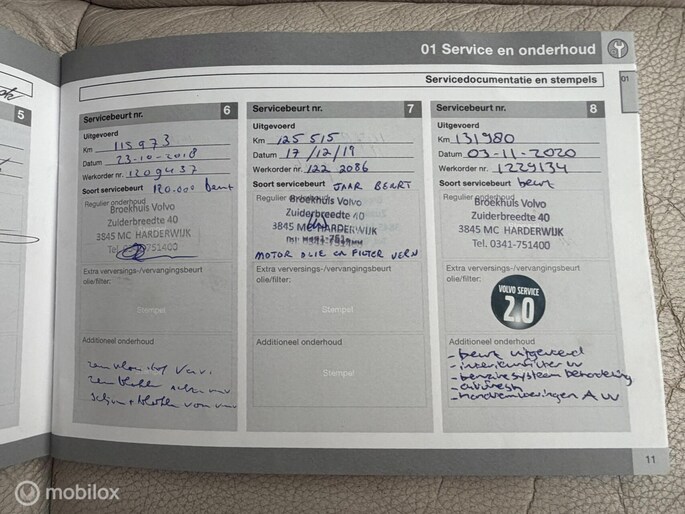 01 Service en onderhoud
Servicedocumentatie en stempels
01
5
Servicebeurt nr. 6
Uitgevoerd
Km 115973
Datum 23-10-2018
Werkorder nr. 1209437
Soort servicebeurt 120.000 beurt
Regulier onderhoud
Broekhuis Volvo
Zuiderbreedte 40
3845 MC HARDERWIJK
Extra verversings-/vervangingsbeurt
olie/filter:
Stempel
Additioneel onderhoud
Servicebeurt nr. 7
Uitgevoerd
Km 125515
Datum 17/12/19
Werkorder nr. 122 2086
Soort servicebeurt JAAR BEURT
Regulier onderhoud
Broekhuis Volvo
Zuiderbreedte 40
3845 MC HARDERWIJK
MOTOR OLIE EN FILTER VERV
Extra verversings-/vervangingsbeurt
olie/filter:
Stempel
Additioneel onderhoud
Stempel
Servicebeurt nr. 8
Uitgevoerd
Km 131980
Datum 03-11-2020
Werkorder nr. 1229134
Soort servicebeurt beurt
Regulier onderhoud
Broekhuis Volvo
Zuiderbreedte 40
3845 MC HARDERWIJK
Tel. 0341-751400
Extra verversings-/vervangingsbeurt
olie/filter:
VOLVO SERVICE
2.0
Additioneel onderhoud
- beurt uitgevoerd
- interieurfilter vv
- benzinesysteem behandeling
- airfresh
- handremvoeringen A vv
11
mobilox